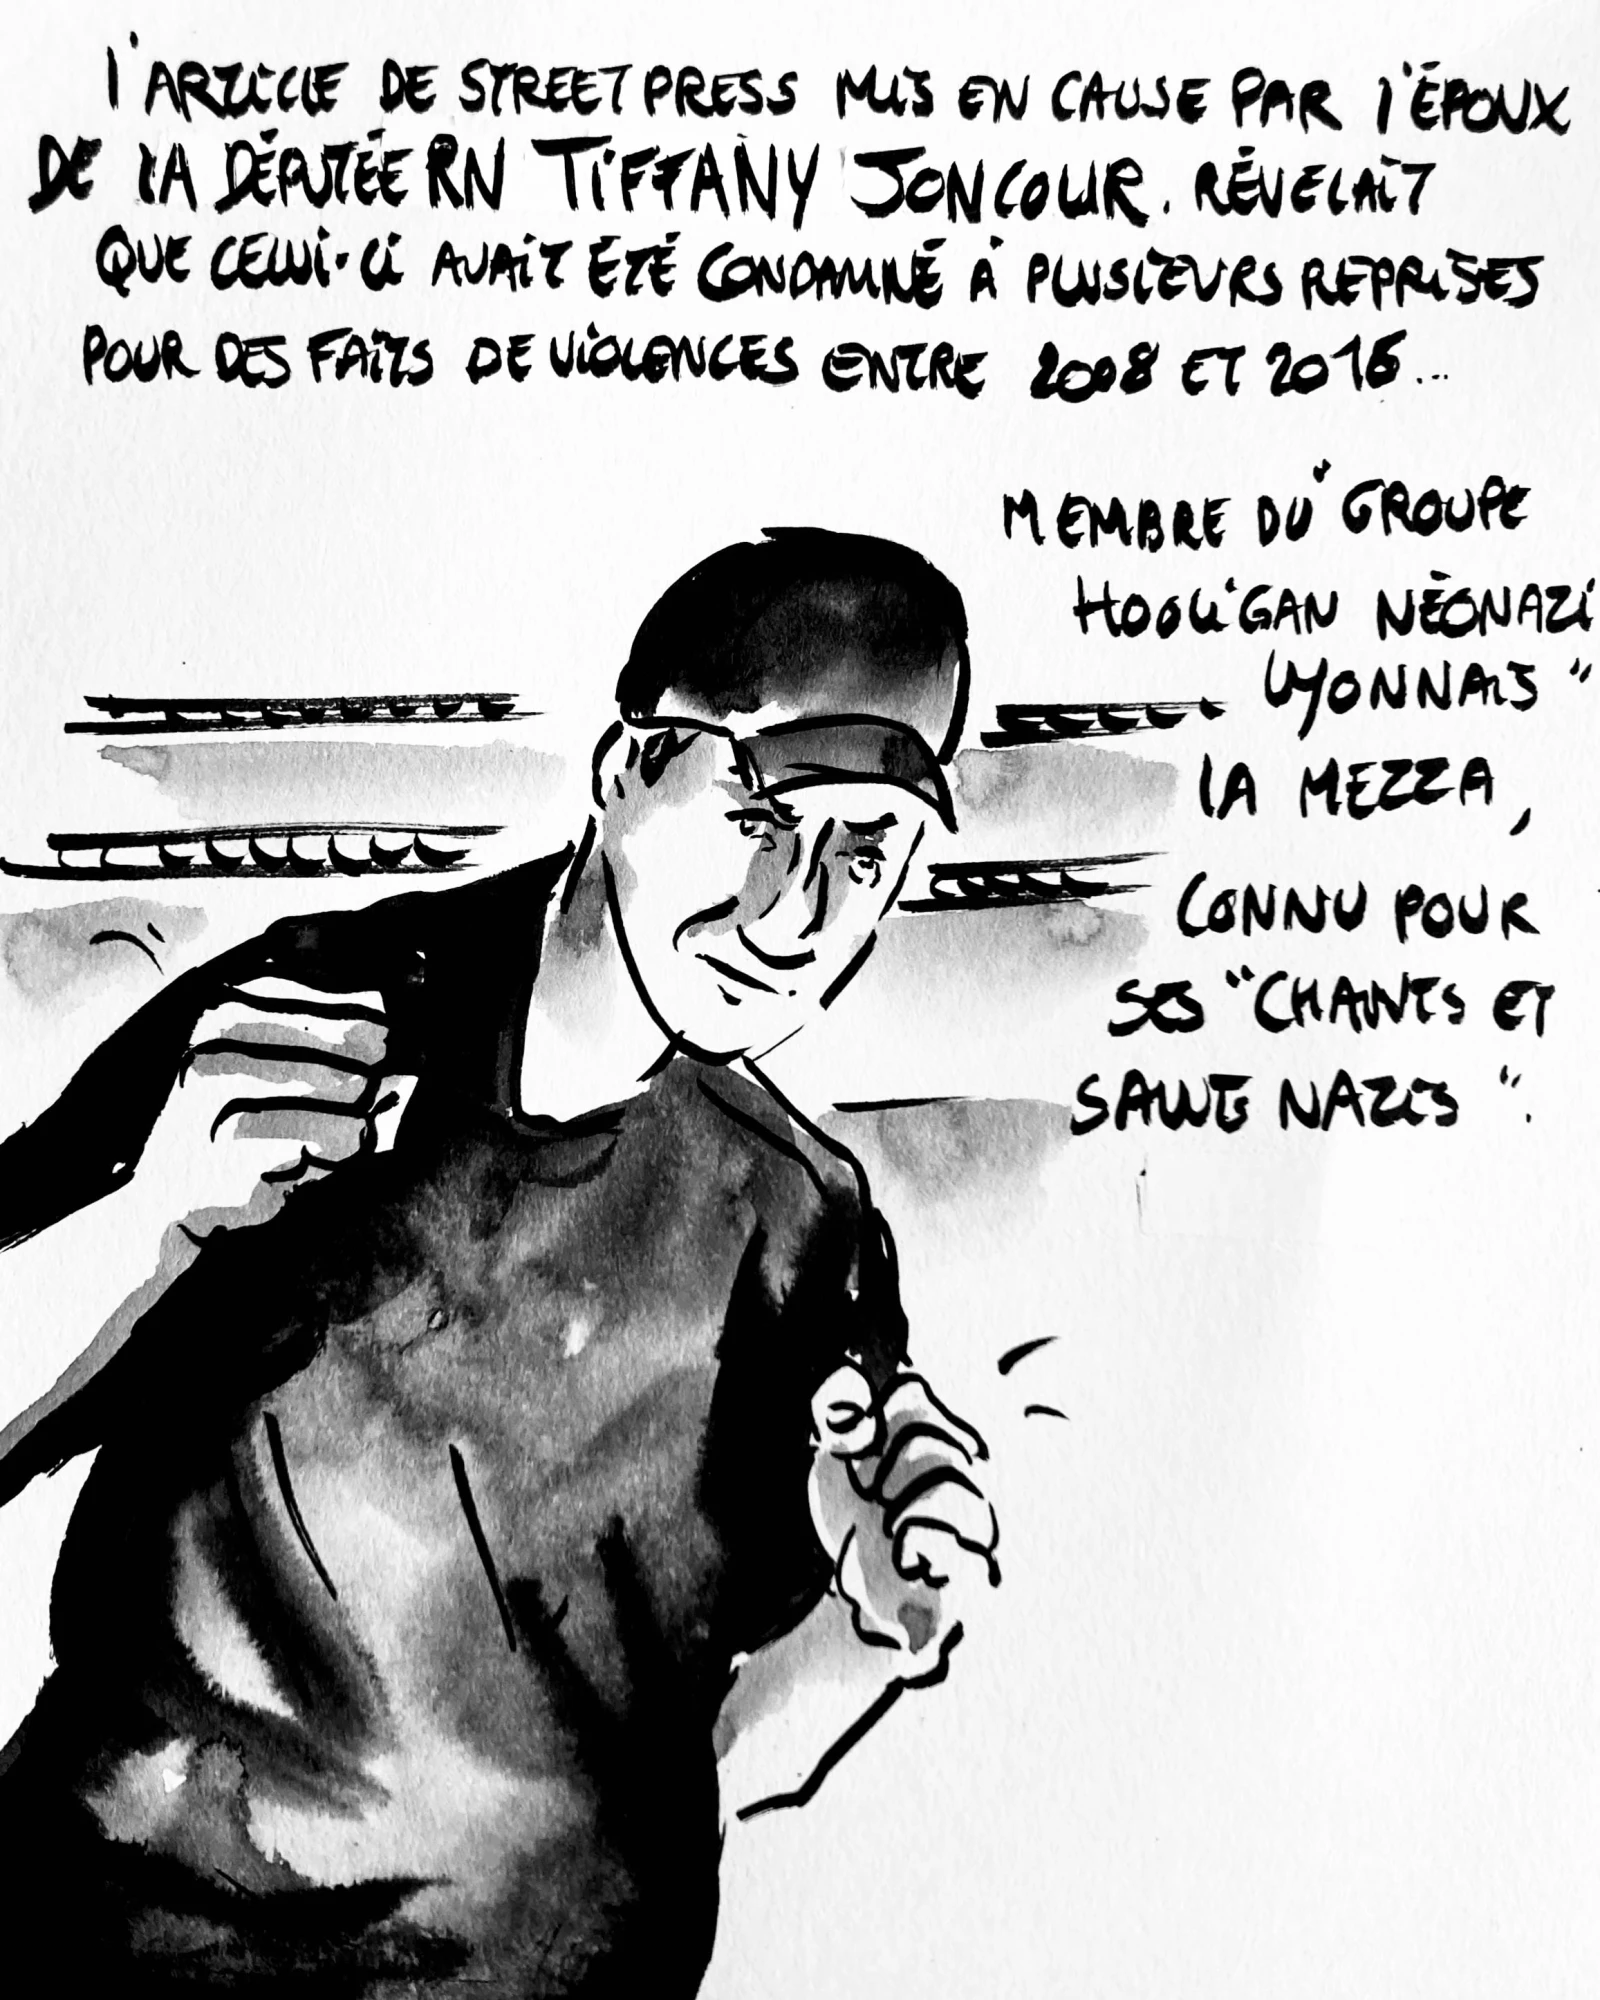 l'ARTICLE DE STREETPRESS MIS EN CAUSE PAR l'ÉPOUX
DE lA DÉPUTÉE RN TIFFANY JONCOUR. RÉVELAIT
QUE CELUI-CI AVAIT ÉTÉ CONDAMNÉ À PLUSIEURS REPRISES
POUR DES FAITS DE VIOLENCES ENTRE 2008 ET 2016...
MEMBRE DU "GROUPE
HOOLIGAN NÉONAZI
LYONNAIS"
lA MEZZA,
CONNU POUR
SES "CHANTS ET
SALUTS NAZIS".